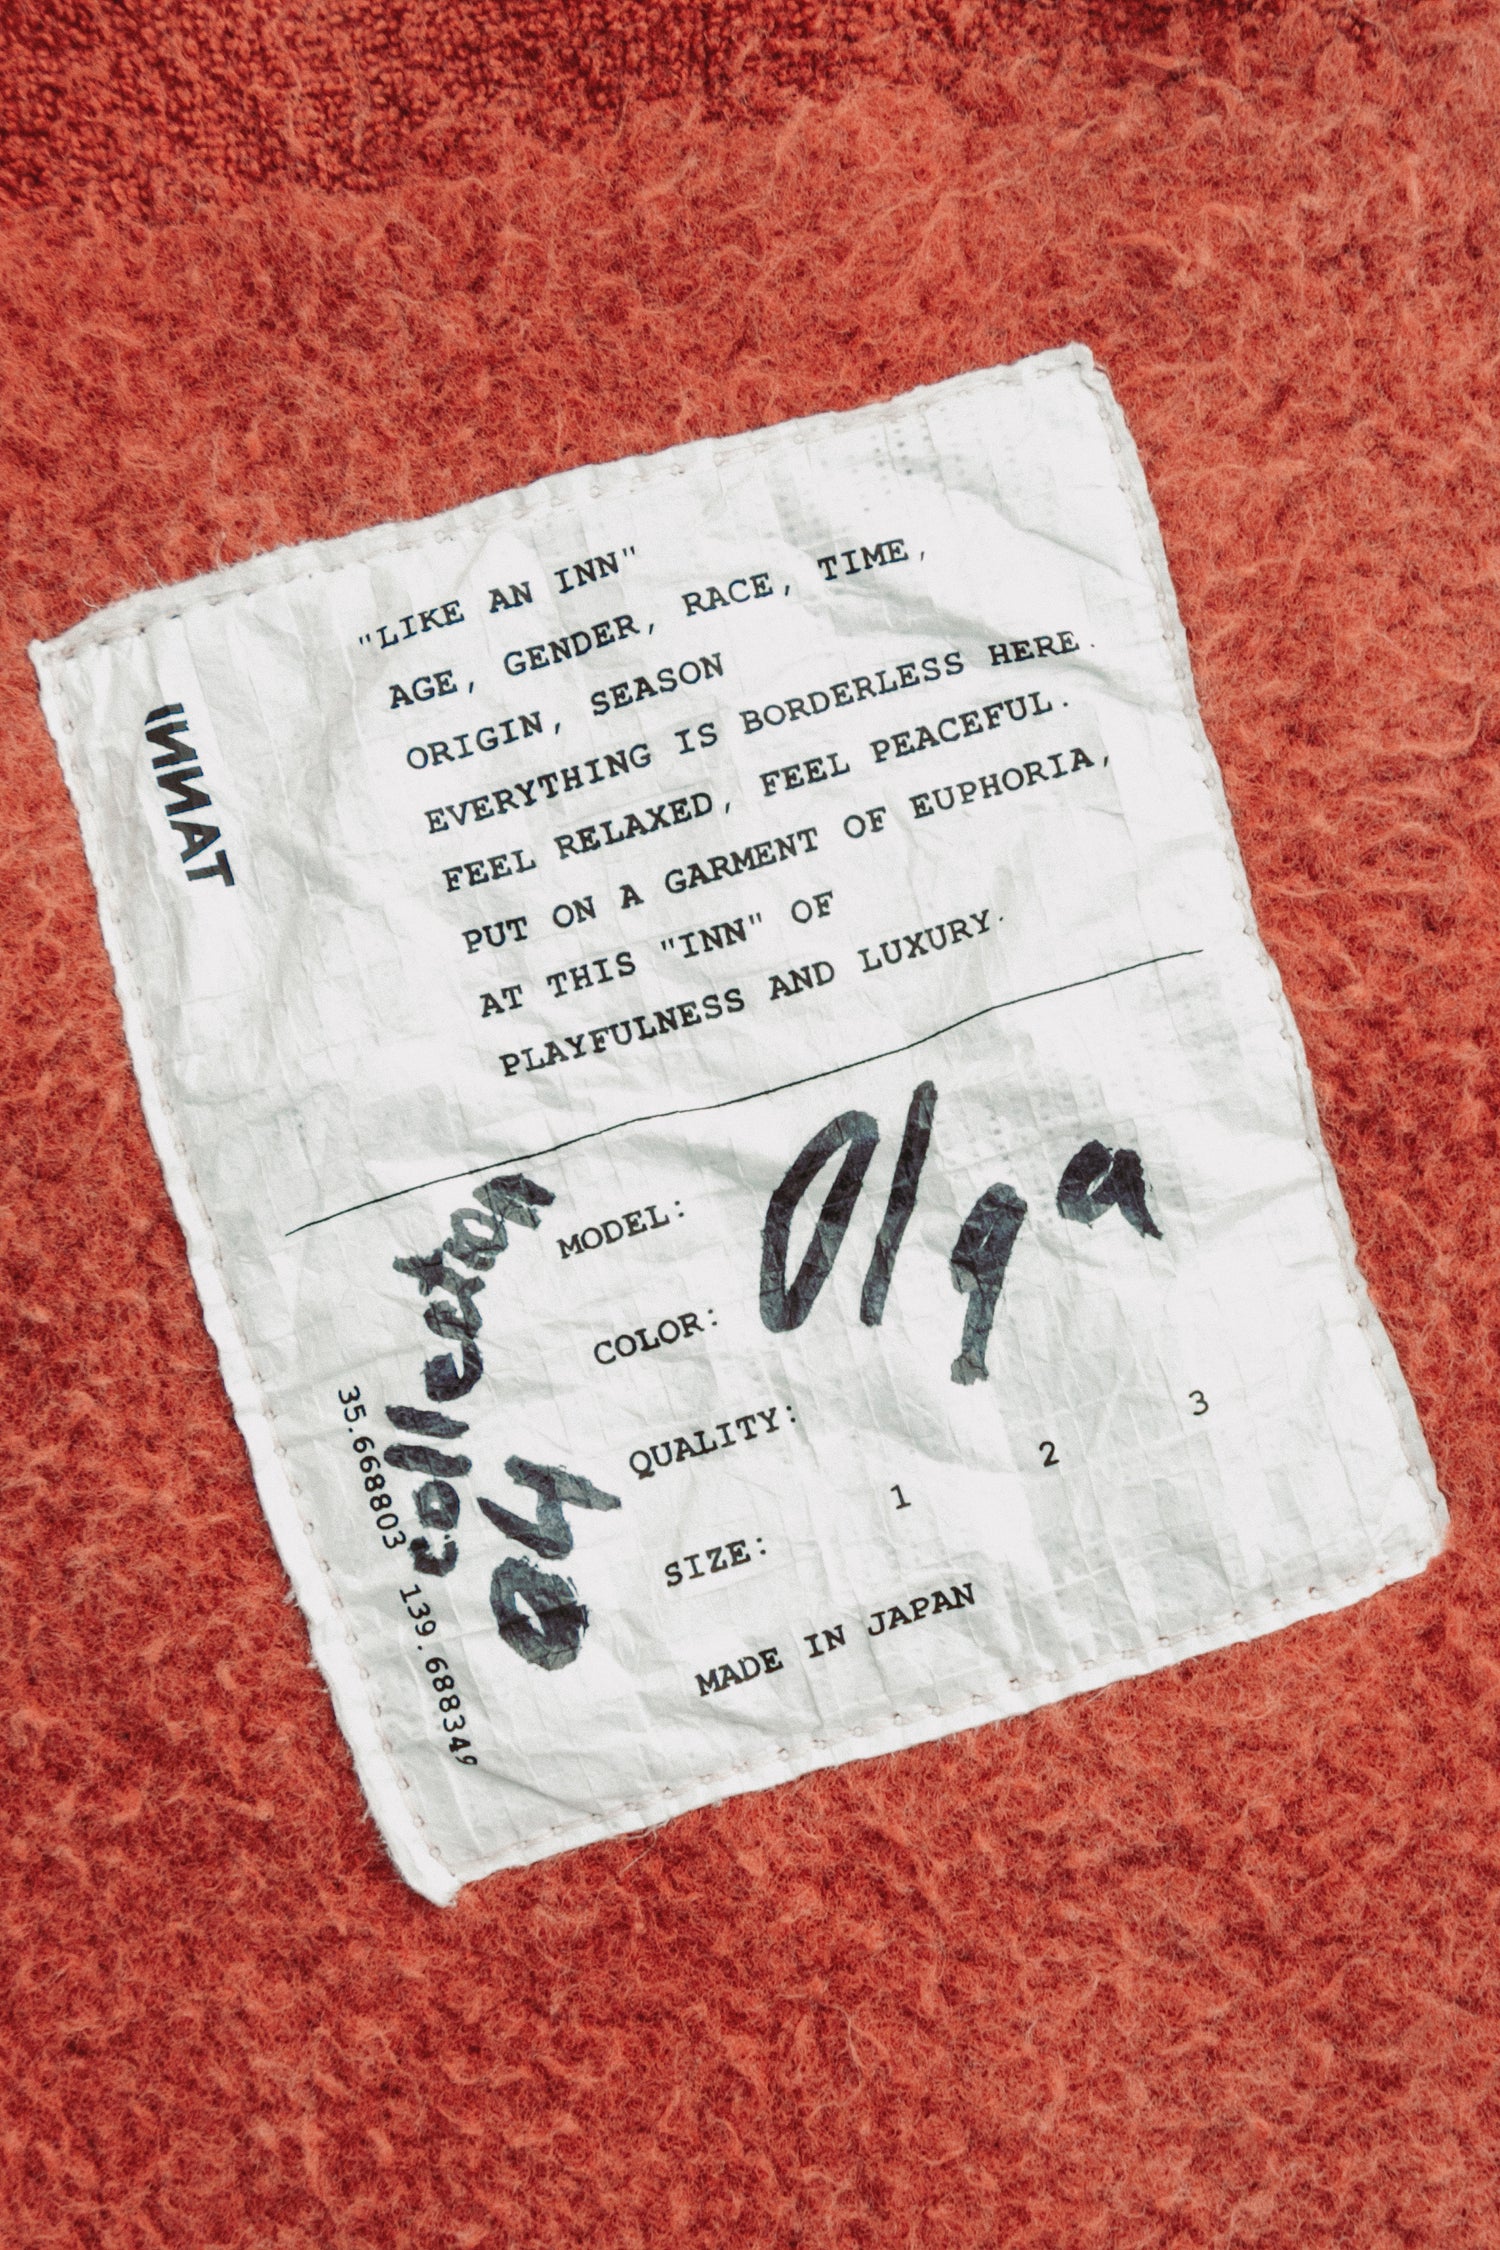 INNAT
"LIKE AN INN"
AGE, GENDER, RACE, TIME,
ORIGIN, SEASON
EVERYTHING IS BORDERLESS HERE.
FEEL RELAXED, FEEL PEACEFUL.
PUT ON A GARMENT OF EUPHORIA,
AT THIS "INN" OF
PLAYFULNESS AND LUXURY.
MODEL: Olga
COLOR:
QUALITY:
SIZE: 1 2 3
MADE IN JAPAN
04 collection
35.668803 139.688349